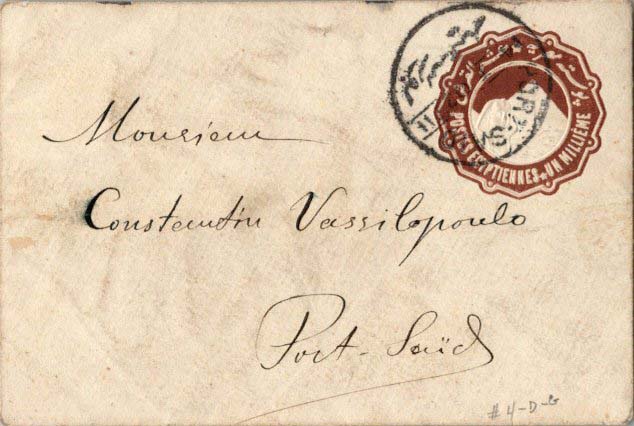 POSTES EGYPTIENNES
UN MILLIÈME
Monsieur
Constantin Vassilopoulo
Port-Saïd
# 4-D-